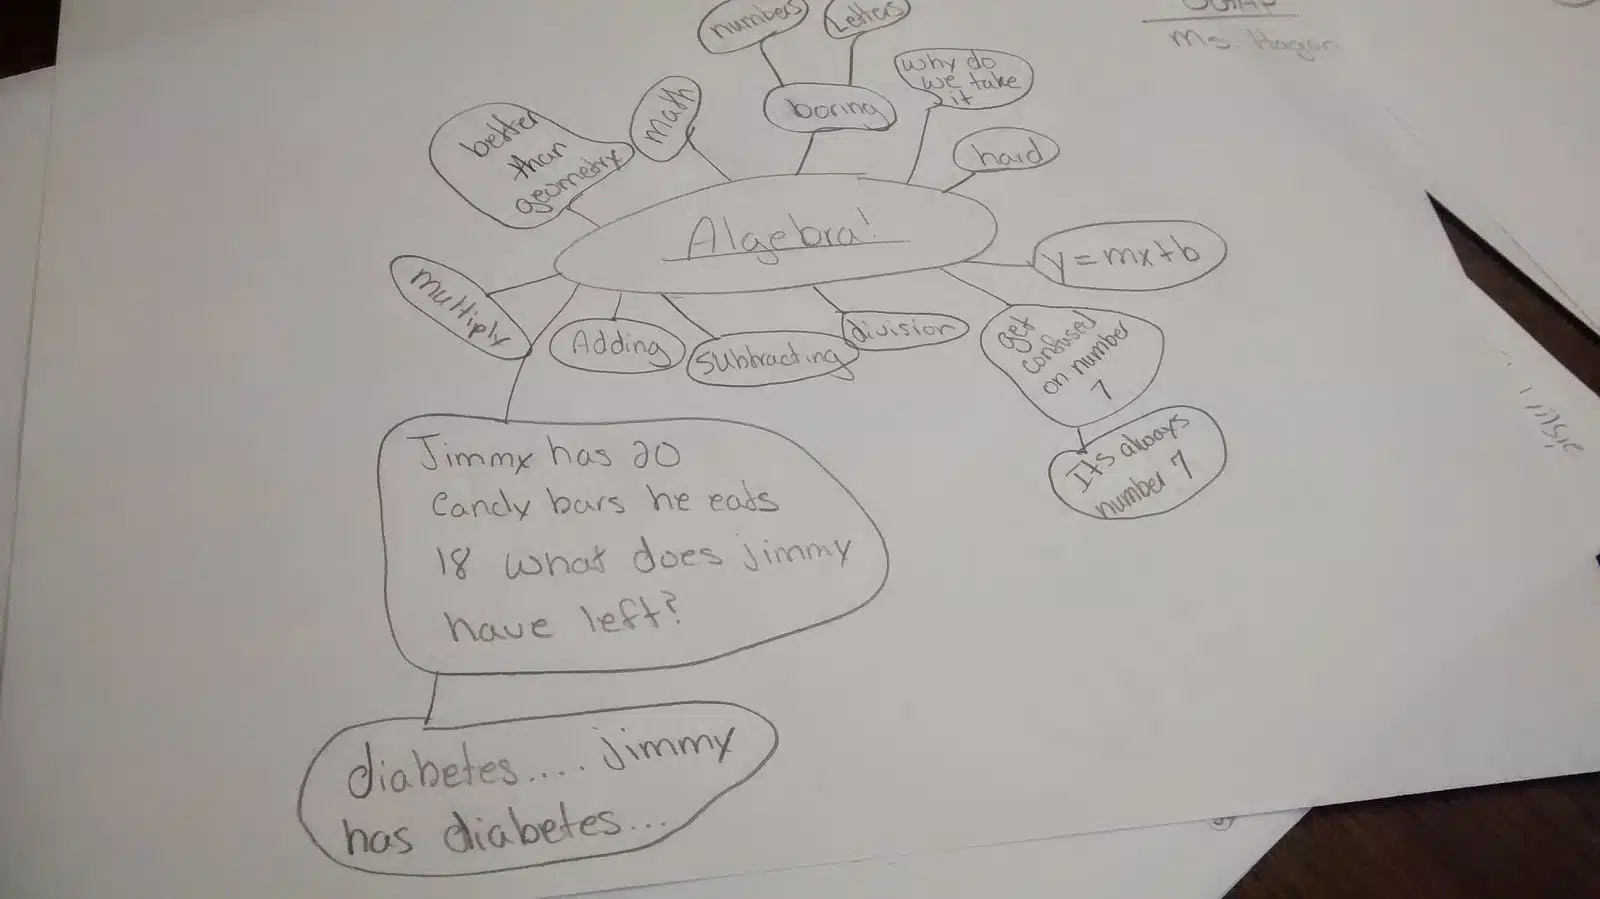 numbers
Letters
Ms. Hagan
why do
we take
it
boring
math
better
than
geometry
hard
Algebra!
y=mx+b
multiply
Adding
subtracting
division
get
confused
on number
7
Its always
number 7
Jimmy has 20
Candy bars he eats
18 what does jimmy
have left?
diabetes.... jimmy
has diabetes...